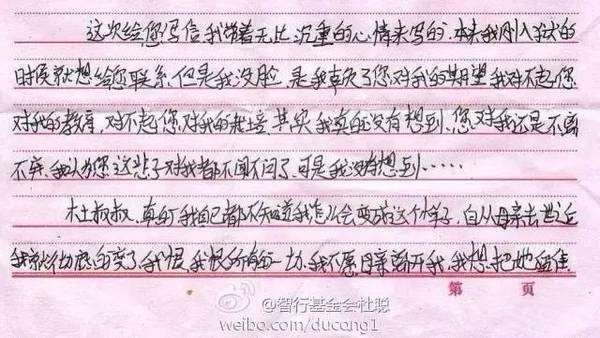 这次给您写信我带着无比沉重的心情来写的.本来我刚入狱的
时候就想给您联系.但是我没脸.是我辜负了您对我的期望我对不起您
对我的教育,对不起您对我的栽培.其实我真的没有想到.您对我还是不离
不弃.我认为您这辈子对我都不闻不问了.可是我没有想到……
杜叔叔.真的我自己都不知道我怎么会变成这个样子,自从母亲去世后
我就彻底的变了.我恨.我恨所有的一切.我不愿母亲离开我.我想把她留住.
第 页
@智行基金会杜聪
weibo.com/ducong1